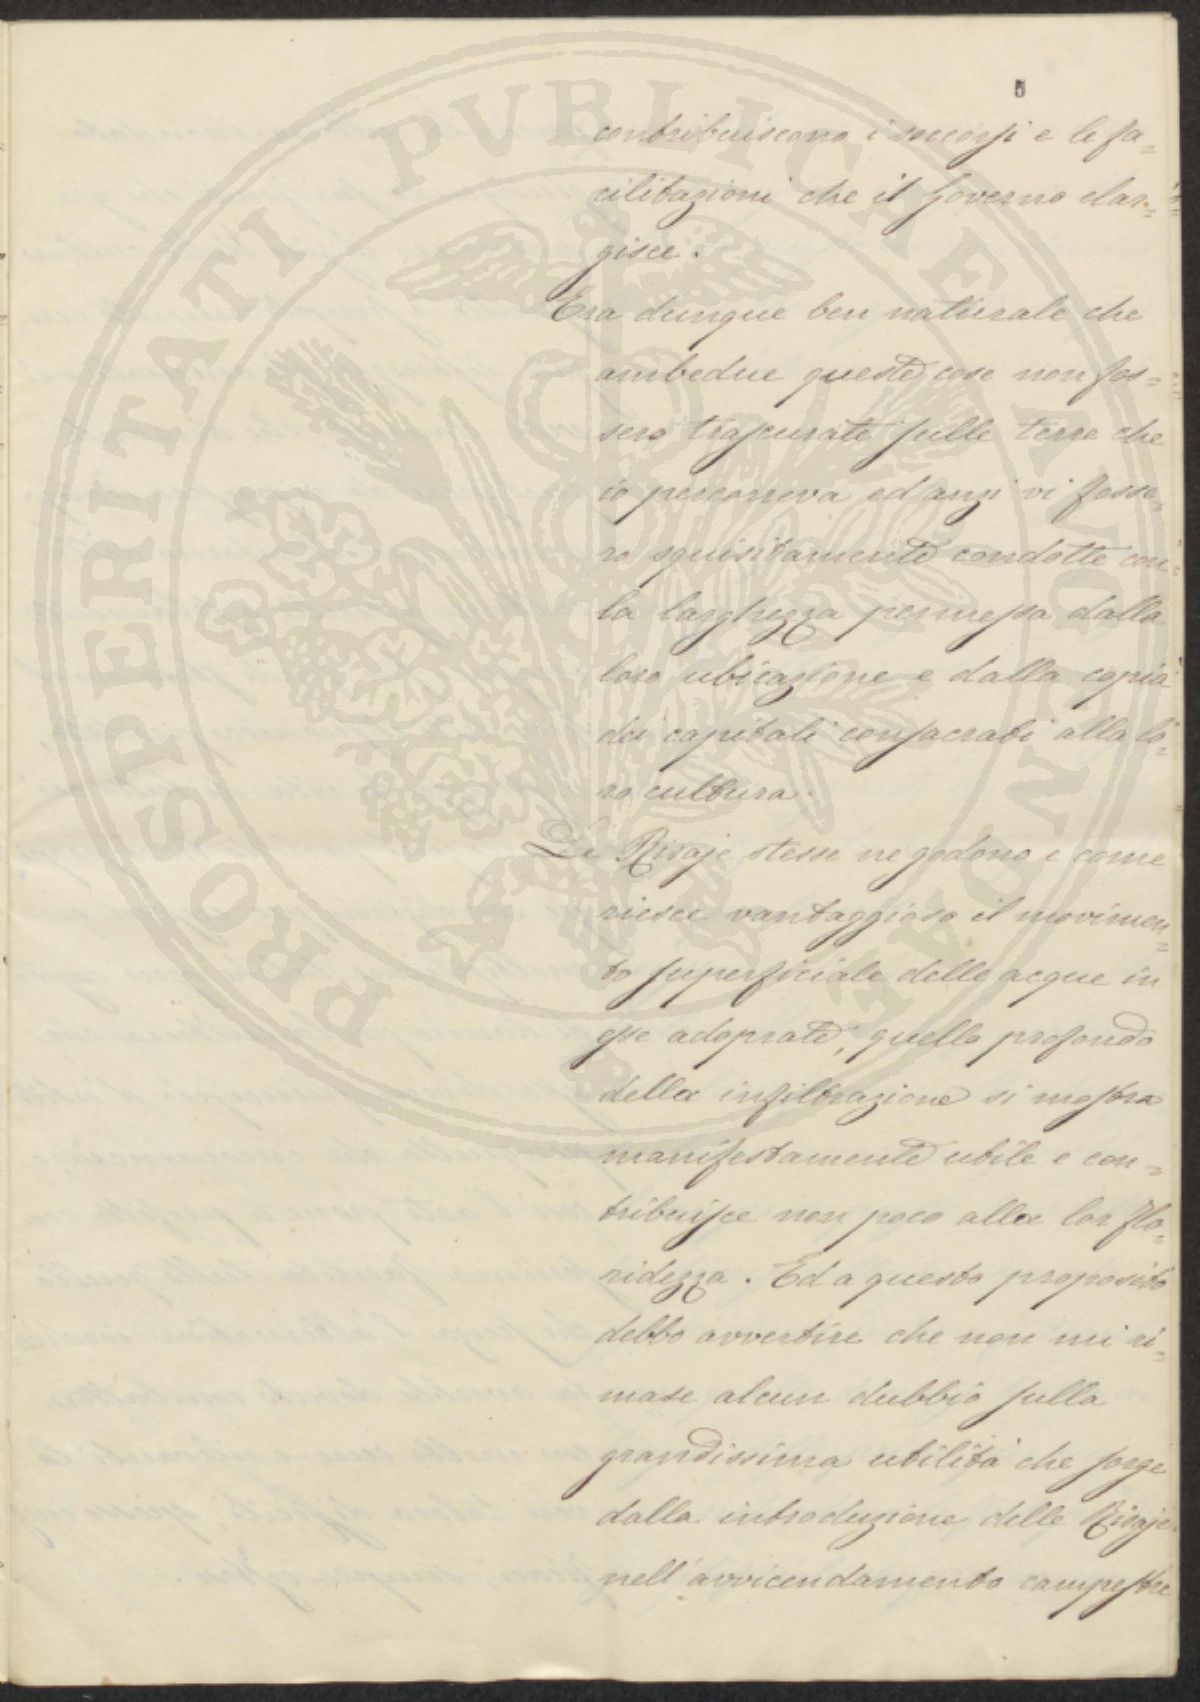 5
contribuiscono i soccorsi e le fa=
cilitazioni che il Governo elar=
gisce.
Era dunque ben naturale che
ambedue queste cose non fos=
sero trascurate sulle terre che
io percorreva ed anzi vi fosse=
ro squisitamente condotte con=
la larghezza permessa dalla
loro ubicazione e dalla copia
dei capitali consacrati alla lo=
ro cultura.
Le Risaje stesse ne godono e come
riesce vantaggioso il movimen=
to superficiale delle acque in
esse adoprate, quello profondo
della infiltrazione si mostra
manifestamente utile e con=
tribuisce non poco alla lor flo=
ridezza. Ed a questo proposito
debbo avvertire che non mi ri=
mase alcun dubbio sulla
grandissima utilità che sorge
dalla introduzione delle Risaje
nell'avvicendamento campestre
PROSPERITATI PUBLICAE AUGENDAE